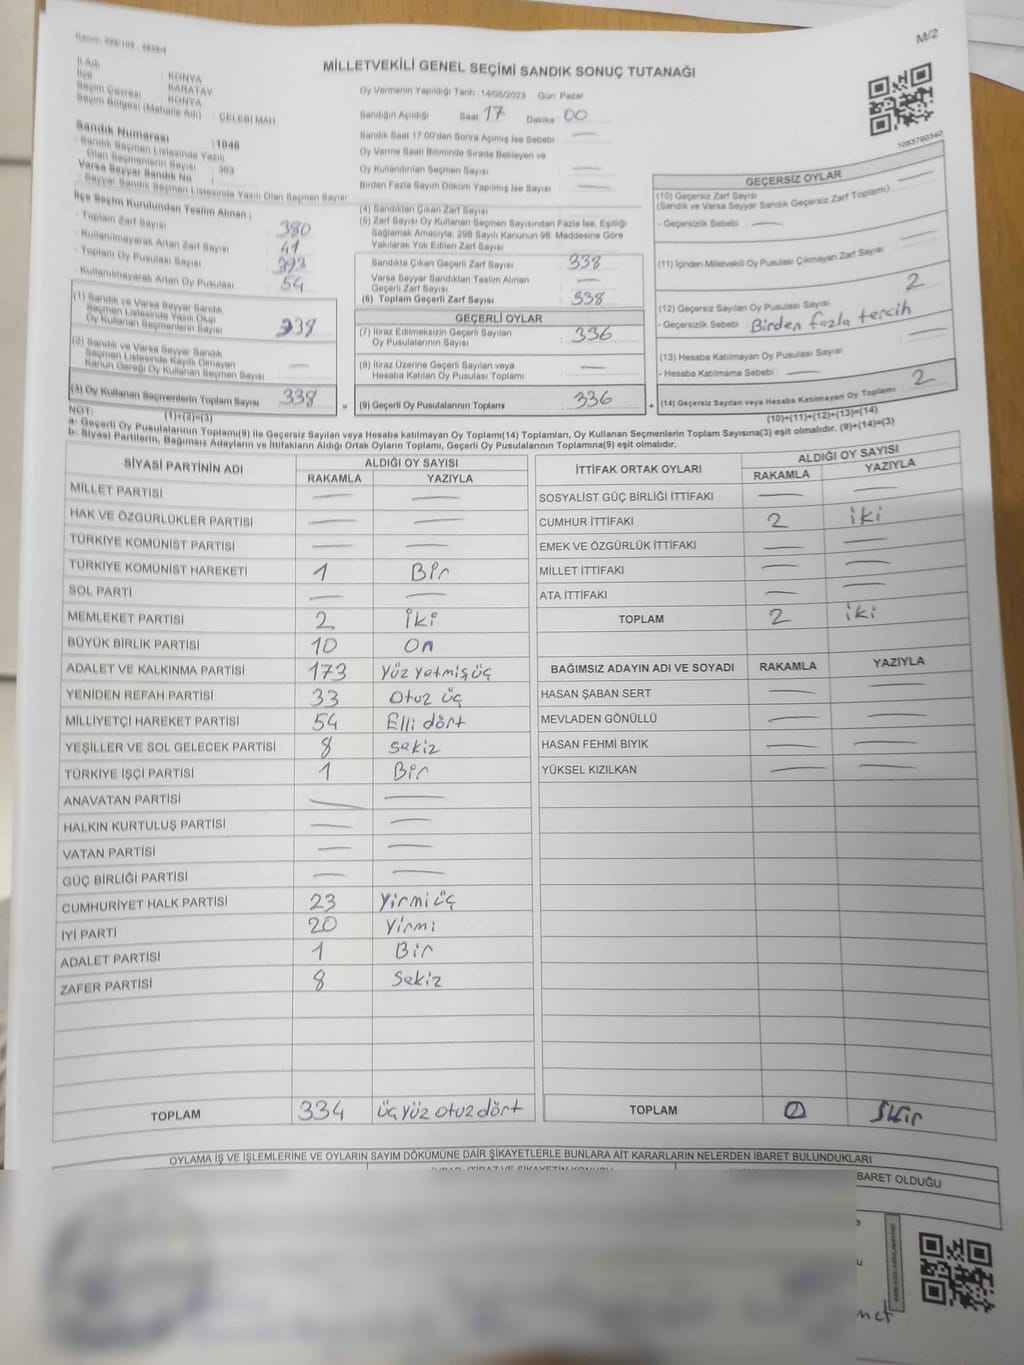 M/2
MİLLETVEKİLİ GENEL SEÇİMİ SANDIK SONUÇ TUTANAĞI
İl Adı : KONYA
İlçe : KARATAY
Seçim Çevresi : KONYA
Seçim Bölgesi (Mahalle Adı) : ÇELEBİ MAH.
Sandık Numarası : 1046
- Sandık Seçmen Listesinde Yazılı
Olan Seçmenlerin Sayısı : 383
Varsa Seyyar Sandık No :
- Seyyar Sandık Seçmen Listesinde Yazılı Olan Seçmen Sayısı
İlçe Seçim Kurulundan Teslim Alınan ;
- Toplam Zarf Sayısı : 380
- Kullanılmayarak Artan Zarf Sayısı : 41
- Toplam Oy Pusulası : 393
- Kullanılmayarak Artan Oy Pusulası : 54
(1) Sandık ve Varsa Seyyar Sandık
Seçmen Listesinde Yazılı Olup
Oy Kullanan Seçmenlerin Sayısı 338
(2) Sandık ve Varsa Seyyar Sandık
Seçmen Listesinde Kayıtlı Olmayan
Kanun Gereği Oy Kullanan Seçmen Sayısı : —
(3) Oy Kullanan Seçmenlerin Toplam Sayısı 338
(1)+(2)=(3)
Oy Vermenin Yapıldığı Tarih :14/05/2023 Gün: Pazar
Sandığın Açıldığı Saat 17 Dakika : 00
Sandık Saat 17.00'den Sonra Açılmış İse Sebebi : —
Oy Verme Saati Bitiminde Sırada Bekleyen ve
Oy Kullandırılan Seçmen Sayısı : —
Birden Fazla Sayım Döküm Yapılmış İse Sayısı : —
(4) Sandıktan Çıkan Zarf Sayısı : —
(5) Zarf Sayısı Oy Kullanan Seçmen Sayısından Fazla İse, Eşitliği
Sağlamak Amacıyla, 298 Sayılı Kanunun 98. Maddesine Göre
Yakılarak Yok Edilen Zarf Sayısı : —
Sandıkta Çıkan Geçerli Zarf Sayısı 338
Varsa Seyyar Sandıktan Teslim Alınan
Geçerli Zarf Sayısı —
(6) Toplam Geçerli Zarf Sayısı 338
GEÇERLİ OYLAR
(7) İtiraz Edilmeksizin Geçerli Sayılan
Oy Pusulalarının Sayısı : 336
(8) İtiraz Üzerine Geçerli Sayılan veya
Hesaba Katılan Oy Pusulası Toplamı : —
= (9) Geçerli Oy Pusulalarının Toplamı 336 +
1083790340
GEÇERSİZ OYLAR
(10) Geçersiz Zarf Sayısı
(Sandık ve Varsa Seyyar Sandık Geçersiz Zarf Toplamı) —
- Geçersizlik Sebebi : —
(11) İçinden Milletvekili Oy Pusulası Çıkmayan Zarf Sayısı —
(12) Geçersiz Sayılan Oy Pusulası Sayısı 2
- Geçersizlik Sebebi Birden fazla tercih
(13) Hesaba Katılmayan Oy Pusulası Sayısı —
- Hesaba Katılmama Sebebi : —
(14) Geçersiz Sayılan veya Hesaba Katılmayan Oy Toplamı 2
(10)+(11)+(12)+(13)=(14)
NOT:
a- Geçerli Oy Pusulalarının Toplamı(9) ile Geçersiz Sayılan veya Hesaba Katılmayan Oy Toplamı(14) Toplamları, Oy Kullanan Seçmenlerin Toplam Sayısına(3) eşit olmalıdır. (9)+(14)=(3)
b- Siyasi Partilerin, Bağımsız Adayların ve İttifakların Aldığı Ortak Oyların Toplamı, Geçerli Oy Pusulalarının Toplamına(9) eşit olmalıdır.
SİYASİ PARTİNİN ADI ALDIĞI OY SAYISI
RAKAMLA YAZIYLA
MİLLET PARTİSİ — —
HAK VE ÖZGÜRLÜKLER PARTİSİ — —
TÜRKİYE KOMÜNİST PARTİSİ — —
TÜRKİYE KOMÜNİST HAREKETİ 1 Bir
SOL PARTİ — —
MEMLEKET PARTİSİ 2 İki
BÜYÜK BİRLİK PARTİSİ 10 On
ADALET VE KALKINMA PARTİSİ 173 Yüz yetmiş üç
YENİDEN REFAH PARTİSİ 33 Otuz üç
MİLLİYETÇİ HAREKET PARTİSİ 54 Elli dört
YEŞİLLER VE SOL GELECEK PARTİSİ 8 Sekiz
TÜRKİYE İŞÇİ PARTİSİ 1 Bir
ANAVATAN PARTİSİ — —
HALKIN KURTULUŞ PARTİSİ — —
VATAN PARTİSİ — —
GÜÇ BİRLİĞİ PARTİSİ — —
CUMHURİYET HALK PARTİSİ 23 Yirmi üç
İYİ PARTİ 20 Yirmi
ADALET PARTİSİ 1 Bir
ZAFER PARTİSİ 8 Sekiz
TOPLAM 334 üç yüz otuz dört
İTTİFAK ORTAK OYLARI ALDIĞI OY SAYISI
RAKAMLA YAZIYLA
SOSYALİST GÜÇ BİRLİĞİ İTTİFAKI — —
CUMHUR İTTİFAKI 2 iki
EMEK VE ÖZGÜRLÜK İTTİFAKI — —
MİLLET İTTİFAKI — —
ATA İTTİFAKI — —
TOPLAM 2 iki
BAĞIMSIZ ADAYIN ADI VE SOYADI RAKAMLA YAZIYLA
HASAN ŞABAN SERT — —
MEVLADEN GÖNÜLLÜ — —
HASAN FEHMİ BIYIK — —
YÜKSEL KIZILKAN — —
TOPLAM
OYLAMA İŞ VE İŞLEMLERİNE VE OYLARIN SAYIM DÖKÜMÜNE DAİR ŞİKAYETLERLE BUNLARA AİT KARARLARIN NELERDEN İBARET BULUNDUKLARI
BARET OLDUĞU